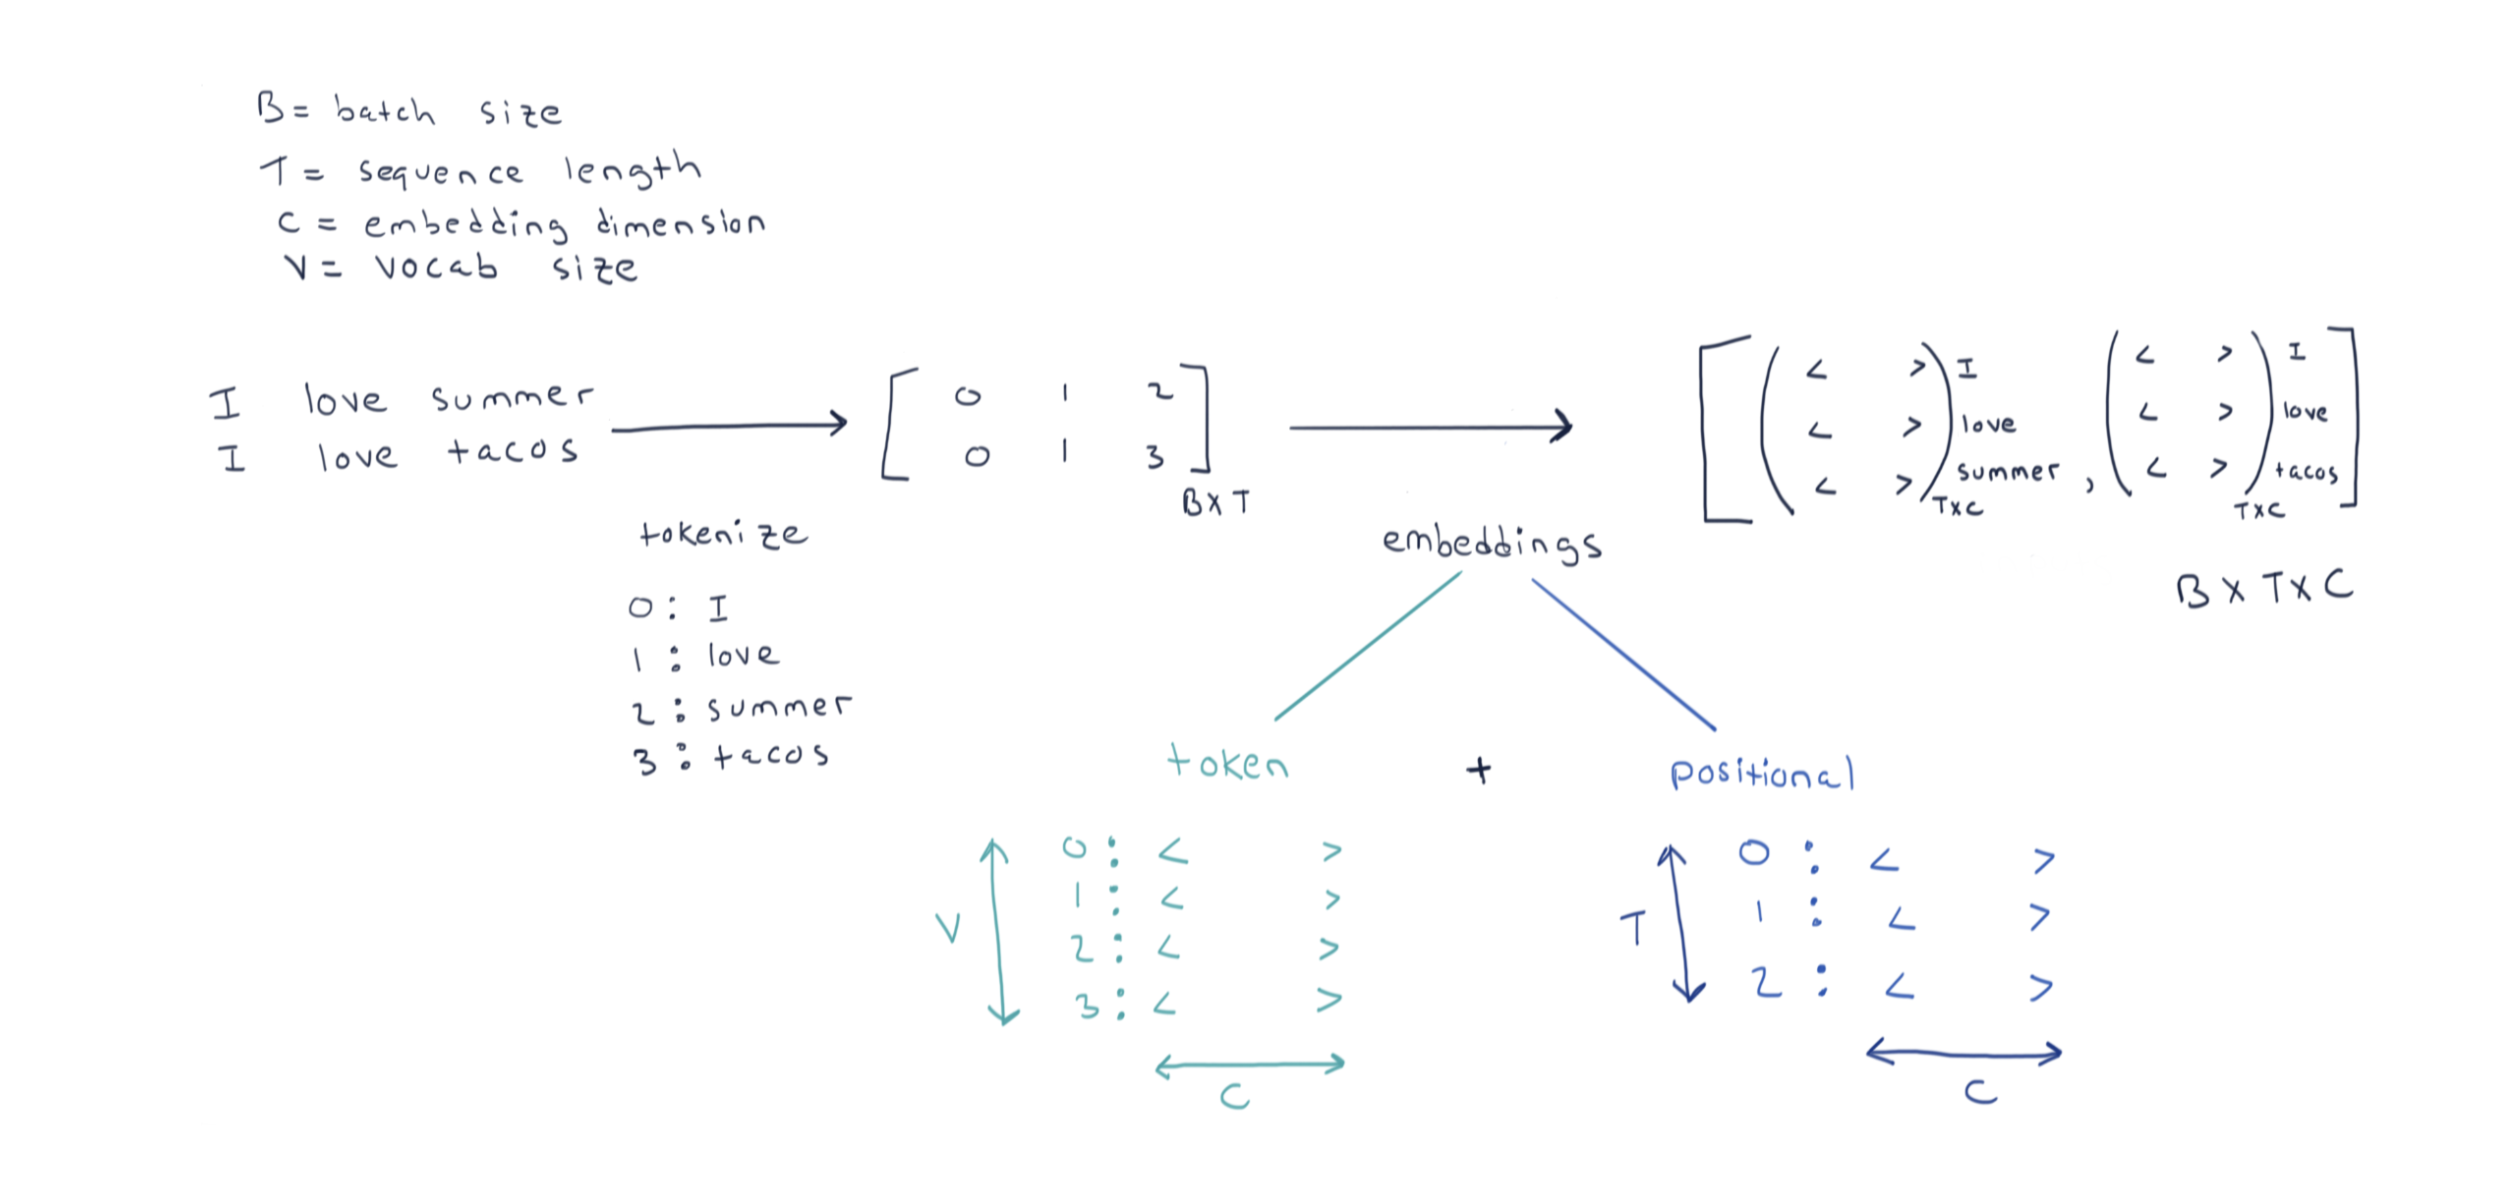 B = batch size
T = sequence length
C = embedding dimension
V = vocab size
I love summer
I love tacos
tokenize
0 : I
1 : love
2 : summer
3 : tacos
[ 0 1 2
0 1 3 ]
B X T
embeddings
[ ( < > ) I
< > love
< > summer
T X C
,
( < > ) I
< > love
< > tacos ]
T X C
B X T X C
token + positional
V
0 : < >
1 : < >
2 : < >
3 : < >
C
T
0 : < >
1 : < >
2 : < >
C